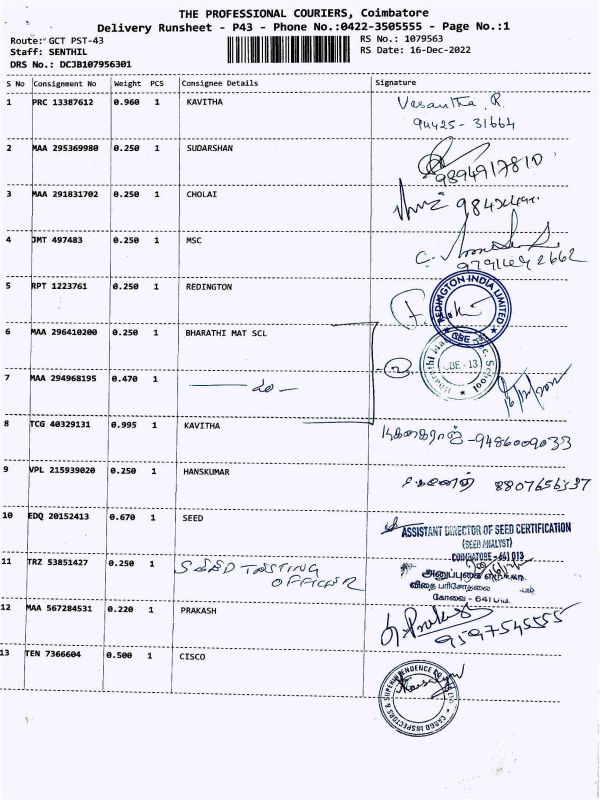 THE PROFESSIONAL COURIERS, Coimbatore
Delivery Runsheet - P43 - Phone No.:0422-3505555 - Page No.:1
Route: GCT PST-43 RS No.: 1079563
Staff: SENTHIL RS Date: 16-Dec-2022
DRS No.: DCJB107956301
S No Consignment No Weight PCS Consignee Details Signature
1 PRC 13387612 0.960 1 KAVITHA Vasantha. R.
94425-31664
2 MAA 295369980 0.250 1 SUDARSHAN
9894917810
3 MAA 291831702 0.250 1 CHOLAI
4 JMT 497483 0.250 1 MSC
5 RPT 1223761 0.250 1 REDINGTON REDINGTON INDIA LIMITED
CBE
6 MAA 296410200 0.250 1 BHARATHI MAT SCL
2 CBE - 13 School
7 MAA 294968195 0.470 1 — do —
8 TCG 40329131 0.995 1 KAVITHA
9486009033
9 VPL 215939020 0.250 1 HANSKUMAR
8807656337
10 EDQ 20152413 0.670 1 SEED ASSISTANT DIRECTOR OF SEED CERTIFICATION
(SEED ANALYST)
COIMBATORE - 641 013
11 TRZ 53851427 0.250 1 SEED TESTING
OFFICER
விதை பரிசோதனை
கோவை - 641 013.
12 MAA 567284531 0.220 1 PRAKASH Prakash
9597545555
13 TEN 7366604 0.500 1 CISCO
CARGO INSPECTORS & SUPERINTENDENCE CO